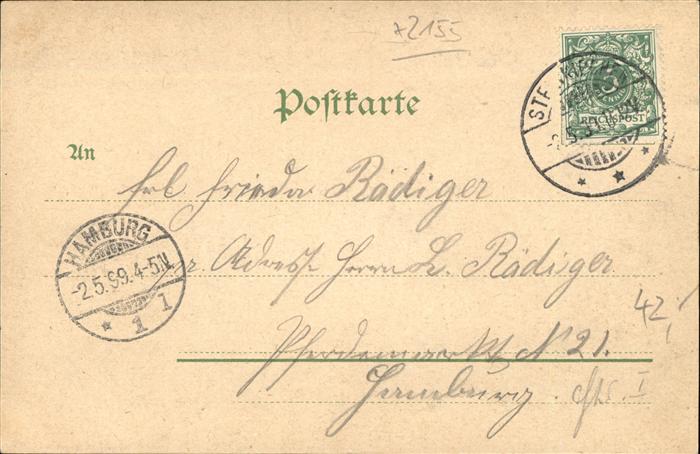 +2155
5
REICHSPOST
-2.5.99.
Postkarte
An
Frl Frieda Rädiger
HAMBURG
-2.5.99.4-5N.
* 1 1
Adresse Herrn L. Rädiger
42,
Pferdemarkt No 21.
Hamburg. I